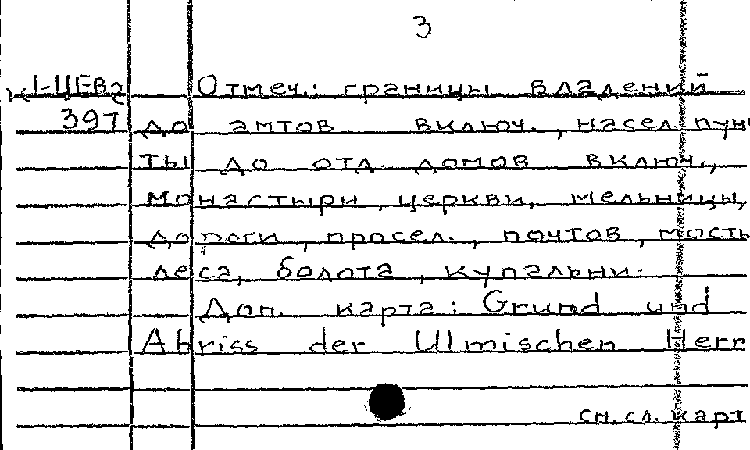 3
К1-ЦЕВ2 Отмеч.: границы владений
397 до амтов включ., насел. пунк
ты до отд. домов включ.,
монастыри, церкви, мельницы,
дороги, просел., почтов., мосты
леса, болота, купальни.
Доп. карта: Grund und
Abriss der Ulmischen Herr
см. сл. карт